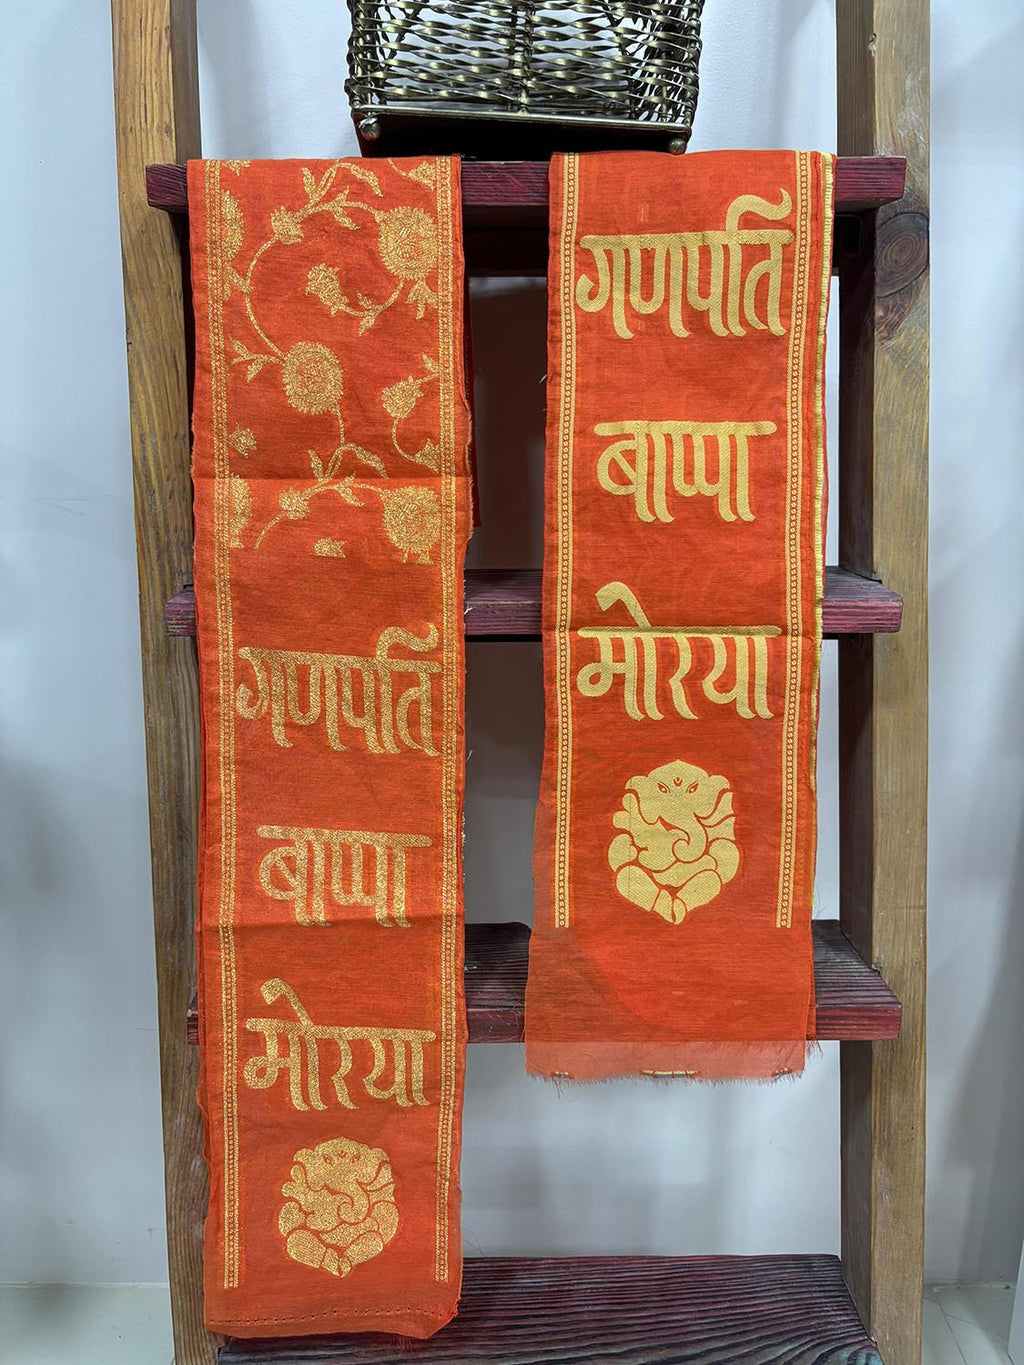 गणपति
बाप्पा
मोरया
गणपति
बाप्पा
मोरया